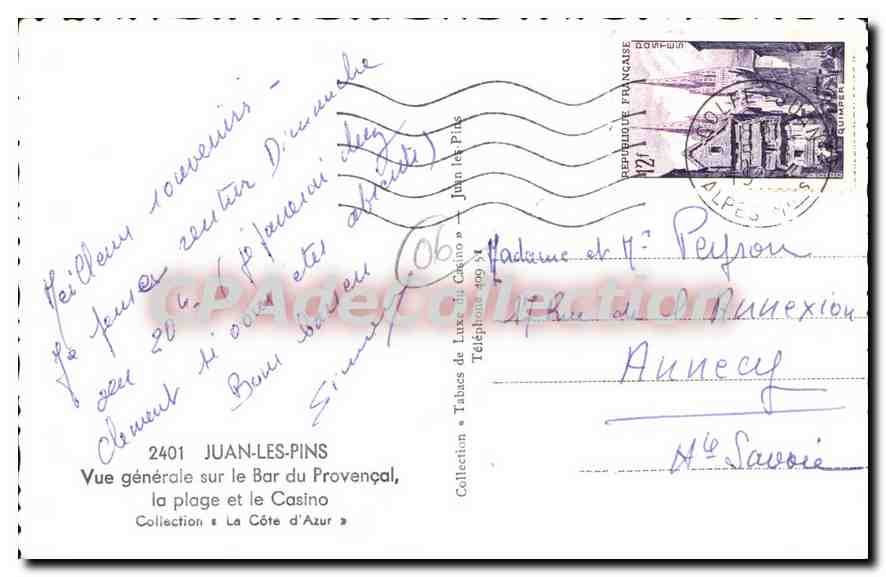 Meilleurs souvenirs -
Je pense rentrer Dimanche
20 h. (J'
si vous etes absents)
Bons baisers
06
2401 JUAN-LES-PINS
Vue générale sur le Bar du Provençal,
la plage et le Casino
Collection « La Côte d'Azur »
Collection « Tabacs de Luxe du Casino » — Juan les-Pins
Téléphone 499 51
REPUBLIQUE FRANÇAISE
POSTES
12f
QUIMPER
GOLFE JUAN
ALPES MMES
Madame et Mr Peyron
Rue de l'Annexion
Annecy
Hte Savoie
CPAdeCollection